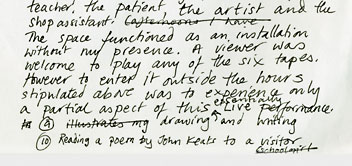 teacher, the patient, the artist and the
shop assistant. Lasternoons I have
The space functioned as an installation
without my presence. A viewer was
welcome to play any of the six tapes.
However to enter it outside the hours
stipulated above was to experience only
a partial aspect of this essentially LIVE performance.
9 Illustrates my drawing and writing
10 Reading a poem by John Keats to a visitor
(schoolgirl